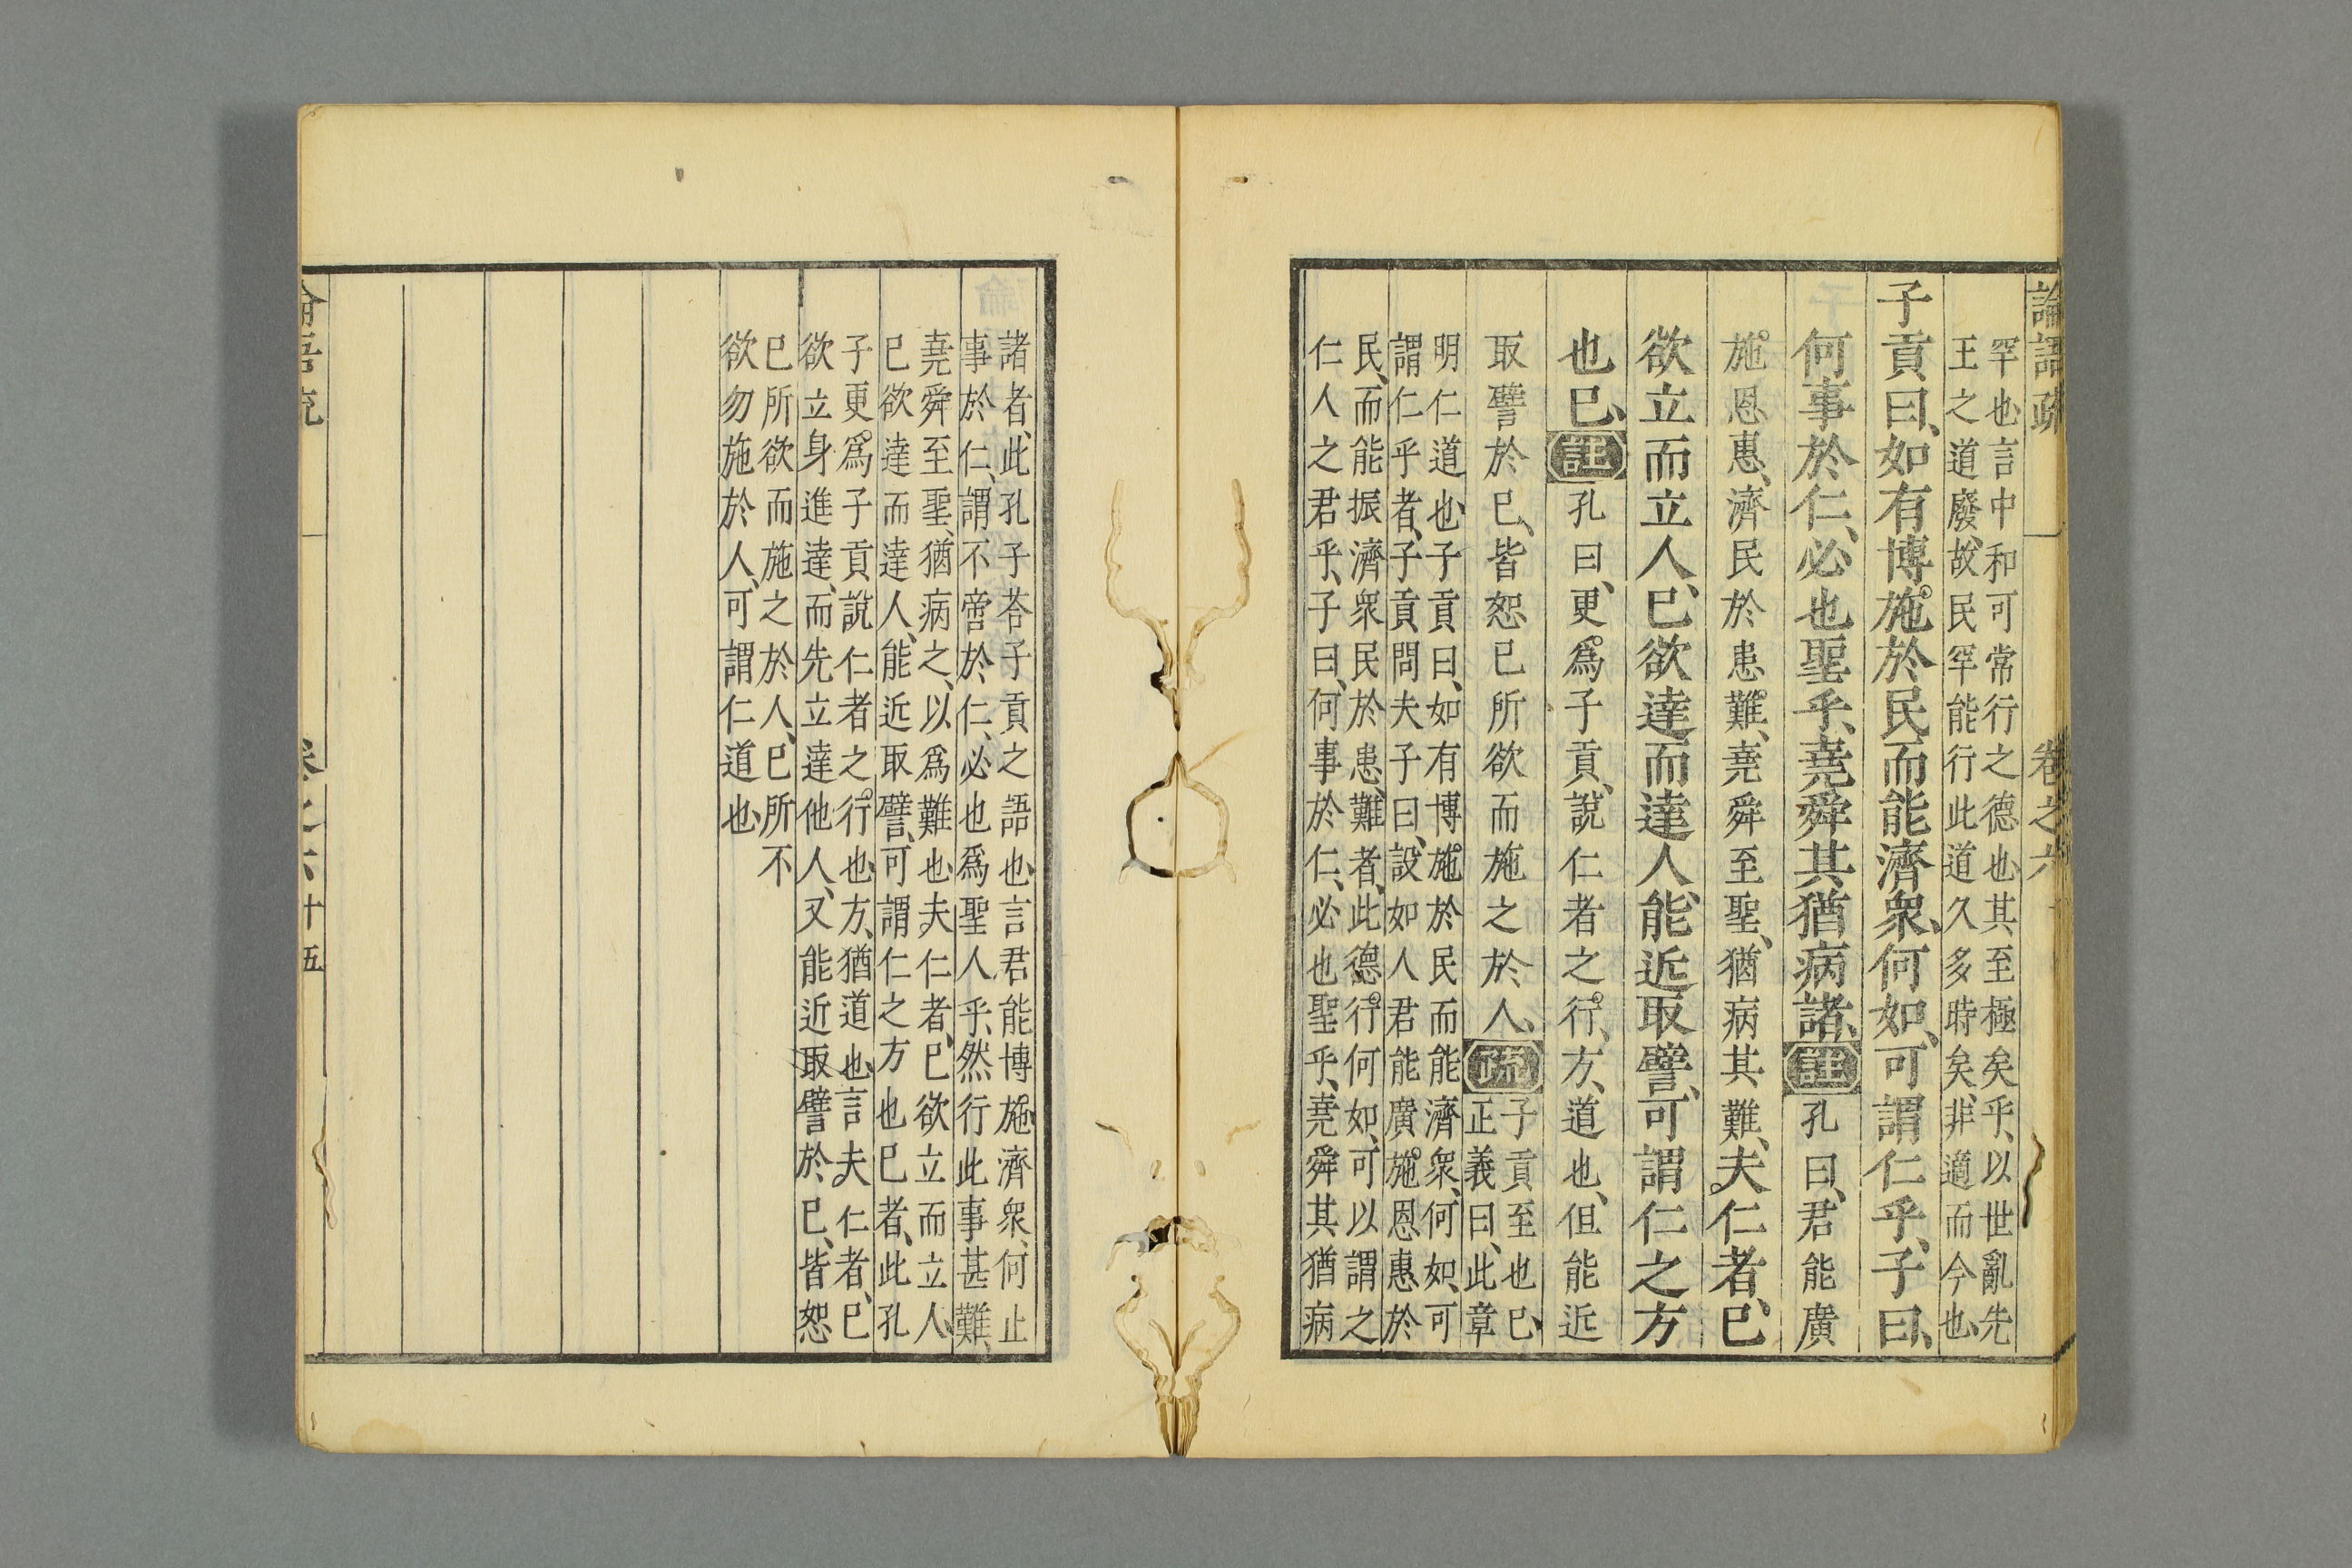 論語疏　卷之六
罕也言中和可常行之德也其至極矣乎、以世亂先
王之道廢、故民罕能行此道久多時矣、非適而今也、
子貢曰、如有博施於民而能濟衆、何如、可謂仁乎、子曰、
何事於仁、必也聖乎、堯舜其猶病諸、註孔曰、君能廣
施恩惠、濟民於患難、堯舜至聖、猶病其難、夫仁者、已
欲立而立人、已欲達而達人、能近取譬、可謂仁之方
也已、註孔曰、更爲子貢、說仁者之行、方、道也、但能近
取譬於已、皆恕已所欲而施之於人、疏子貢至也已、
正義曰、此章
明仁道也、子貢曰、如有博施於民而能濟衆、何如、可
謂仁乎者、子貢問夫子曰、設如人君能廣施恩惠於
民、而能振濟衆民於患難者、此德行何如、可以謂之
仁人之君乎、子曰、何事於仁、必也聖乎、堯舜其猶病
諸者、此孔子荅子貢之語也、言君能博施濟衆、何止
事於仁、謂不啻於仁、必也爲聖人乎、然行此事甚難、
堯舜至聖、猶病之、以爲難也、夫仁者、已欲立而立人、
已欲達而達人、能近取譬、可謂仁之方也已者、此孔
子更爲子貢說仁者之行也、方、猶道也、言夫仁者、已
欲立身進達、而先立達他人、又能近取譬於已、皆恕
已所欲而施之於人、已所不
欲勿施於人、可謂仁道也、